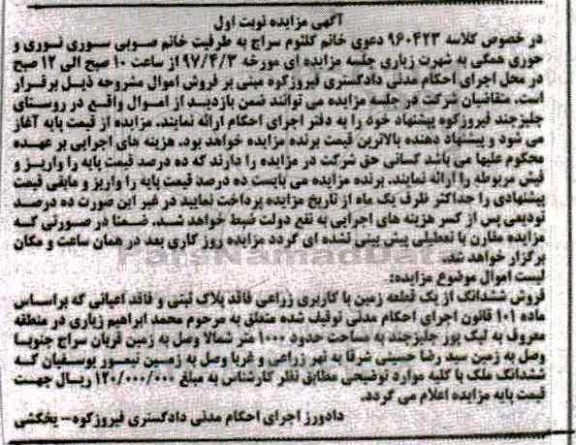 آگهی مزایده نوبت اول
در خصوص کلاسه ۹۶۰۴۲۳ دعوی خانم کلثوم سراج به طرفیت خانم صوبی سوری نوری و
حوری همگی به شهرت زیاری جلسه مزایده ای مورخه ۹۷/۴/۳ از ساعت ۱۰ صبح الی ۱۲ صبح
در محل اجرای احکام مدنی دادگستری فیروزکوه مبنی بر فروش اموال مشروحه ذیل برقرار
است. متقاضیان شرکت در جلسه مزایده می توانند ضمن بازدید از اموال واقع در روستای
جلیزجند فیروزکوه پیشنهاد خود را به دفتر اجرای احکام ارائه نمایند. مزایده از قیمت پایه آغاز
می شود و پیشنهاد دهنده بالاترین قیمت برنده مزایده خواهد بود. هزینه های اجرایی بر عهده
محکوم علیها می باشد کسانی حق شرکت در مزایده را دارند که ده درصد قیمت پایه را واریز و
فیش مربوطه را ارائه نمایند. برنده مزایده می بایست ده درصد قیمت پایه را واریز و مابقی قیمت
پیشنهادی را حداکثر ظرف یک ماه از تاریخ مزایده پرداخت نمایید در غیر این صورت ده درصد
تودیعی پس از کسر هزینه های اجرایی به نفع دولت ضبط خواهد شد. ضمنا در صورتی که
مزایده مقارن با تعطیلی پیش بینی نشده ای گردد مزایده روز کاری بعد در همان ساعت و مکان
برگزار خواهد شد.
ParsNamadData
لیست اموال موضوع مزایده:
فروش ششدانگ از یک قطعه زمین با کاربری زراعی فاقد پلاک ثبتی و فاقد اعیانی که براساس
ماده ۱۰۱ قانون اجرای احکام مدنی توقیف شده متعلق به مرحوم محمد ابراهیم زیاری در منطقه
معروف به لیک پور جلیزجند به مساحت حدود ۱۰۰۰ متر شمالا وصل به زمین قربان سراج جنوبا
وصل به زمین سید رضا حسینی شرقا به نهر زراعی و غربا وصل به زمین تیمور یوسفیان که
ششدانگ ملک با کلیه موارد توضیحی مطابق نظر کارشناس به مبلغ ۱۲۰/۰۰۰/۰۰۰ ریال جهت
قیمت پایه مزایده اعلام می گردد.
دادورز اجرای احکام مدنی دادگستری فیروزکوه- یخکشی